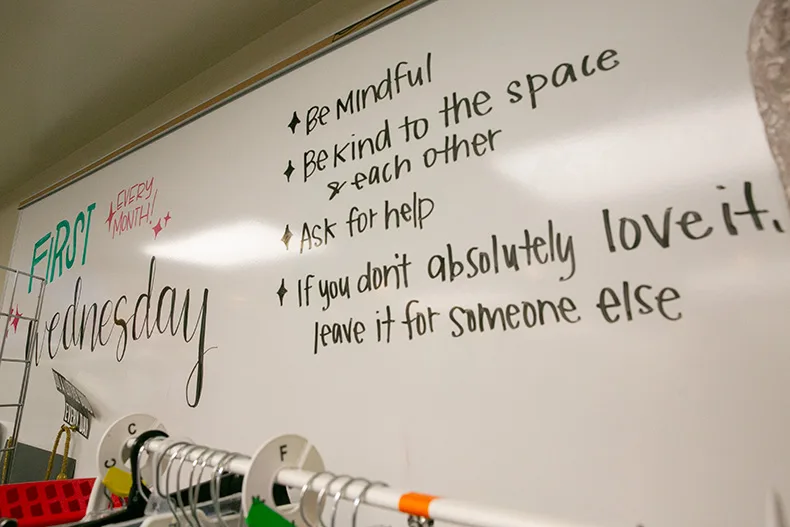 FIRST
EVERY
MONTH!
wednesday
Be Mindful
Be kind to the space
& each other
Ask for help
If you don't absolutely love it,
leave it for someone else
C
C
F